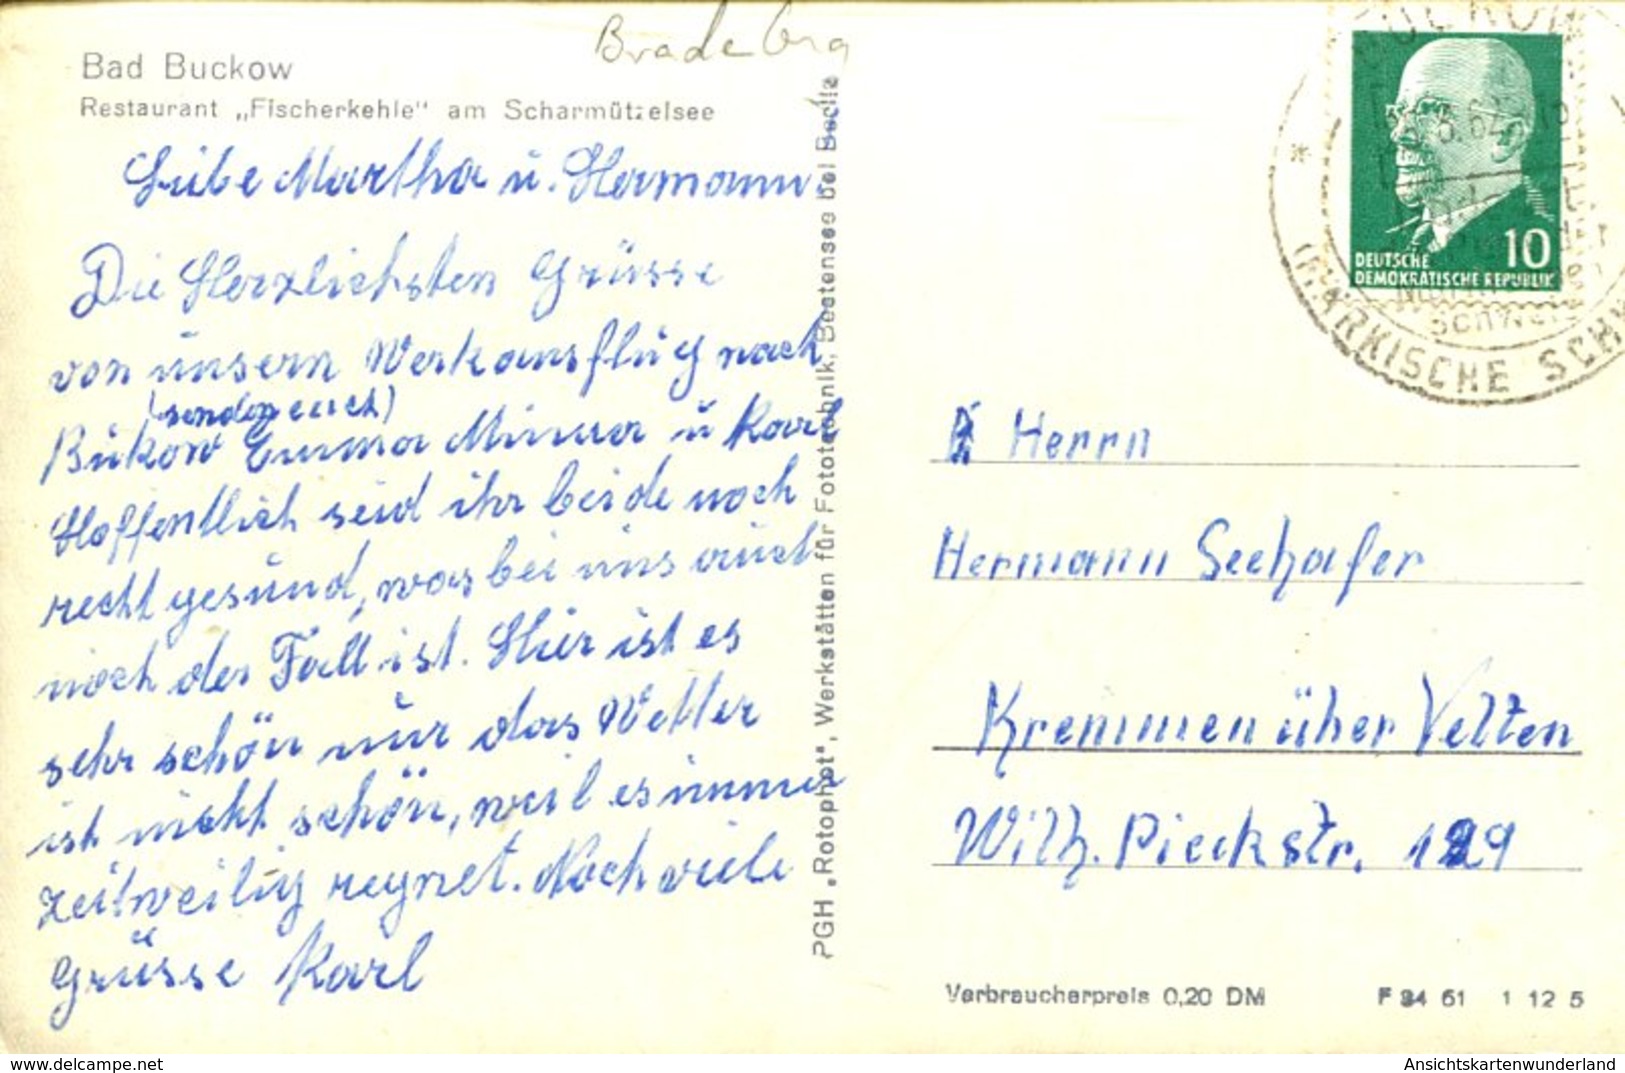 Bad Buckow
Restaurant „Fischerkehle" am Scharmützelsee
Liebe Martha u. Hermann
Die Herzlichsten Grüsse
von unsern Werkausflug nach
(senden euch)
Bukow Emma Minna u Karl
Hoffentlich seid ihr beide noch
recht gesund, was bei uns auch
noch der Fall ist. Hier ist es
sehr schön nur das Wetter
ist nicht schön, weil es immer
zeitweilig regnet. Noch viele
Grüsse Karl
PGH „Rotophot", Werkstätten für Fototechnik, Bestensee bei Berlin
10
DEUTSCHE
DEMOKRATISCHE REPUBLIK
MÄRKISCHE SCHW
Herrn
Hermann Seehafer
Kremmen über Velten
Wilh. Pieckstr. 129
Verbraucherpreis 0,20 DM
F 34 61 1 12 5
delcampe.net
Ansichtskartenwunderland